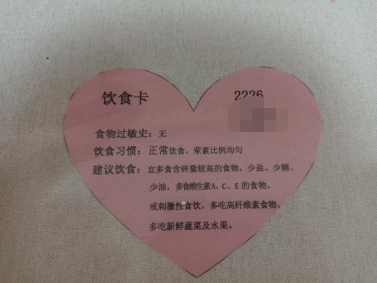 饮食卡 2226
食物过敏史：无
饮食习惯：正常饮食，荤素比例均匀
建议饮食：宜多食含锌量较高的食物、少盐、少糖、
少油，多食维生素A、C、E的食物，
戒刺激性食饮，多吃高纤维素食物、
多吃新鲜蔬菜及水果。